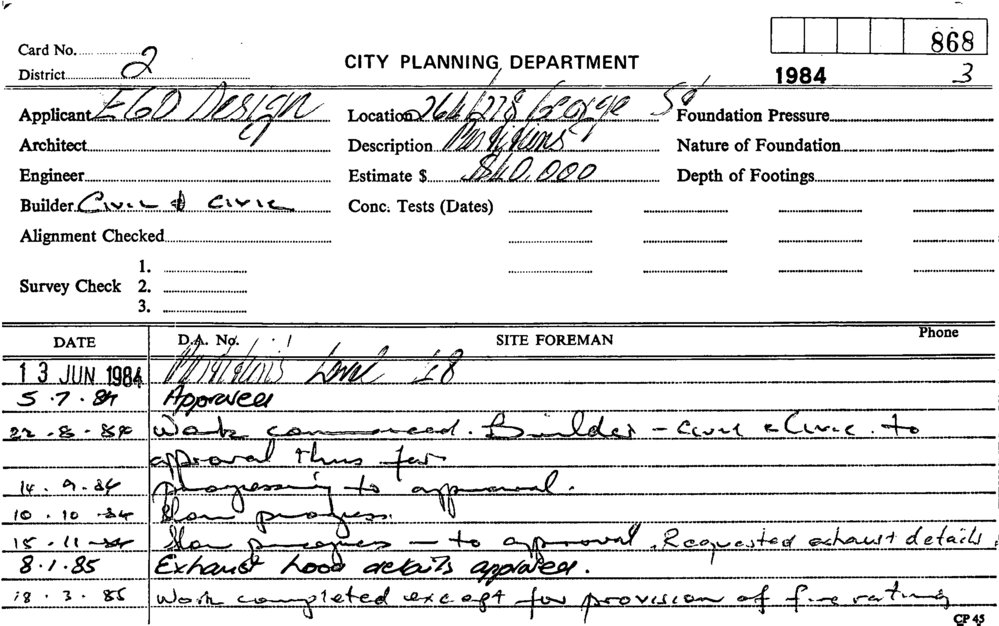 868
Card No.
2
CITY PLANNING DEPARTMENT
District
1984 3
Applicant EGO Design Location 264/278 George St Foundation Pressure
Architect Description Partitions Nature of Foundation
Engineer Estimate $ $40,000 Depth of Footings
Builder Civil & Civic Conc. Tests (Dates)
Alignment Checked
1.
Survey Check 2.
3.
DATE D.A. No. SITE FOREMAN Phone
13 JUN 1984 Partitions Level 18
5.7.84 Approved
22.8.84 Work commenced. Builder - Civil & Civic. to
approval thus far
14.9.84 Progressing to approval.
10.10.84 Slow progress.
15.11.84 Slow progress - to approval. Requested exhaust details.
8.1.85 Exhaust hood details approved.
18.3.85 Work completed except for provision of fire rating
CP 45